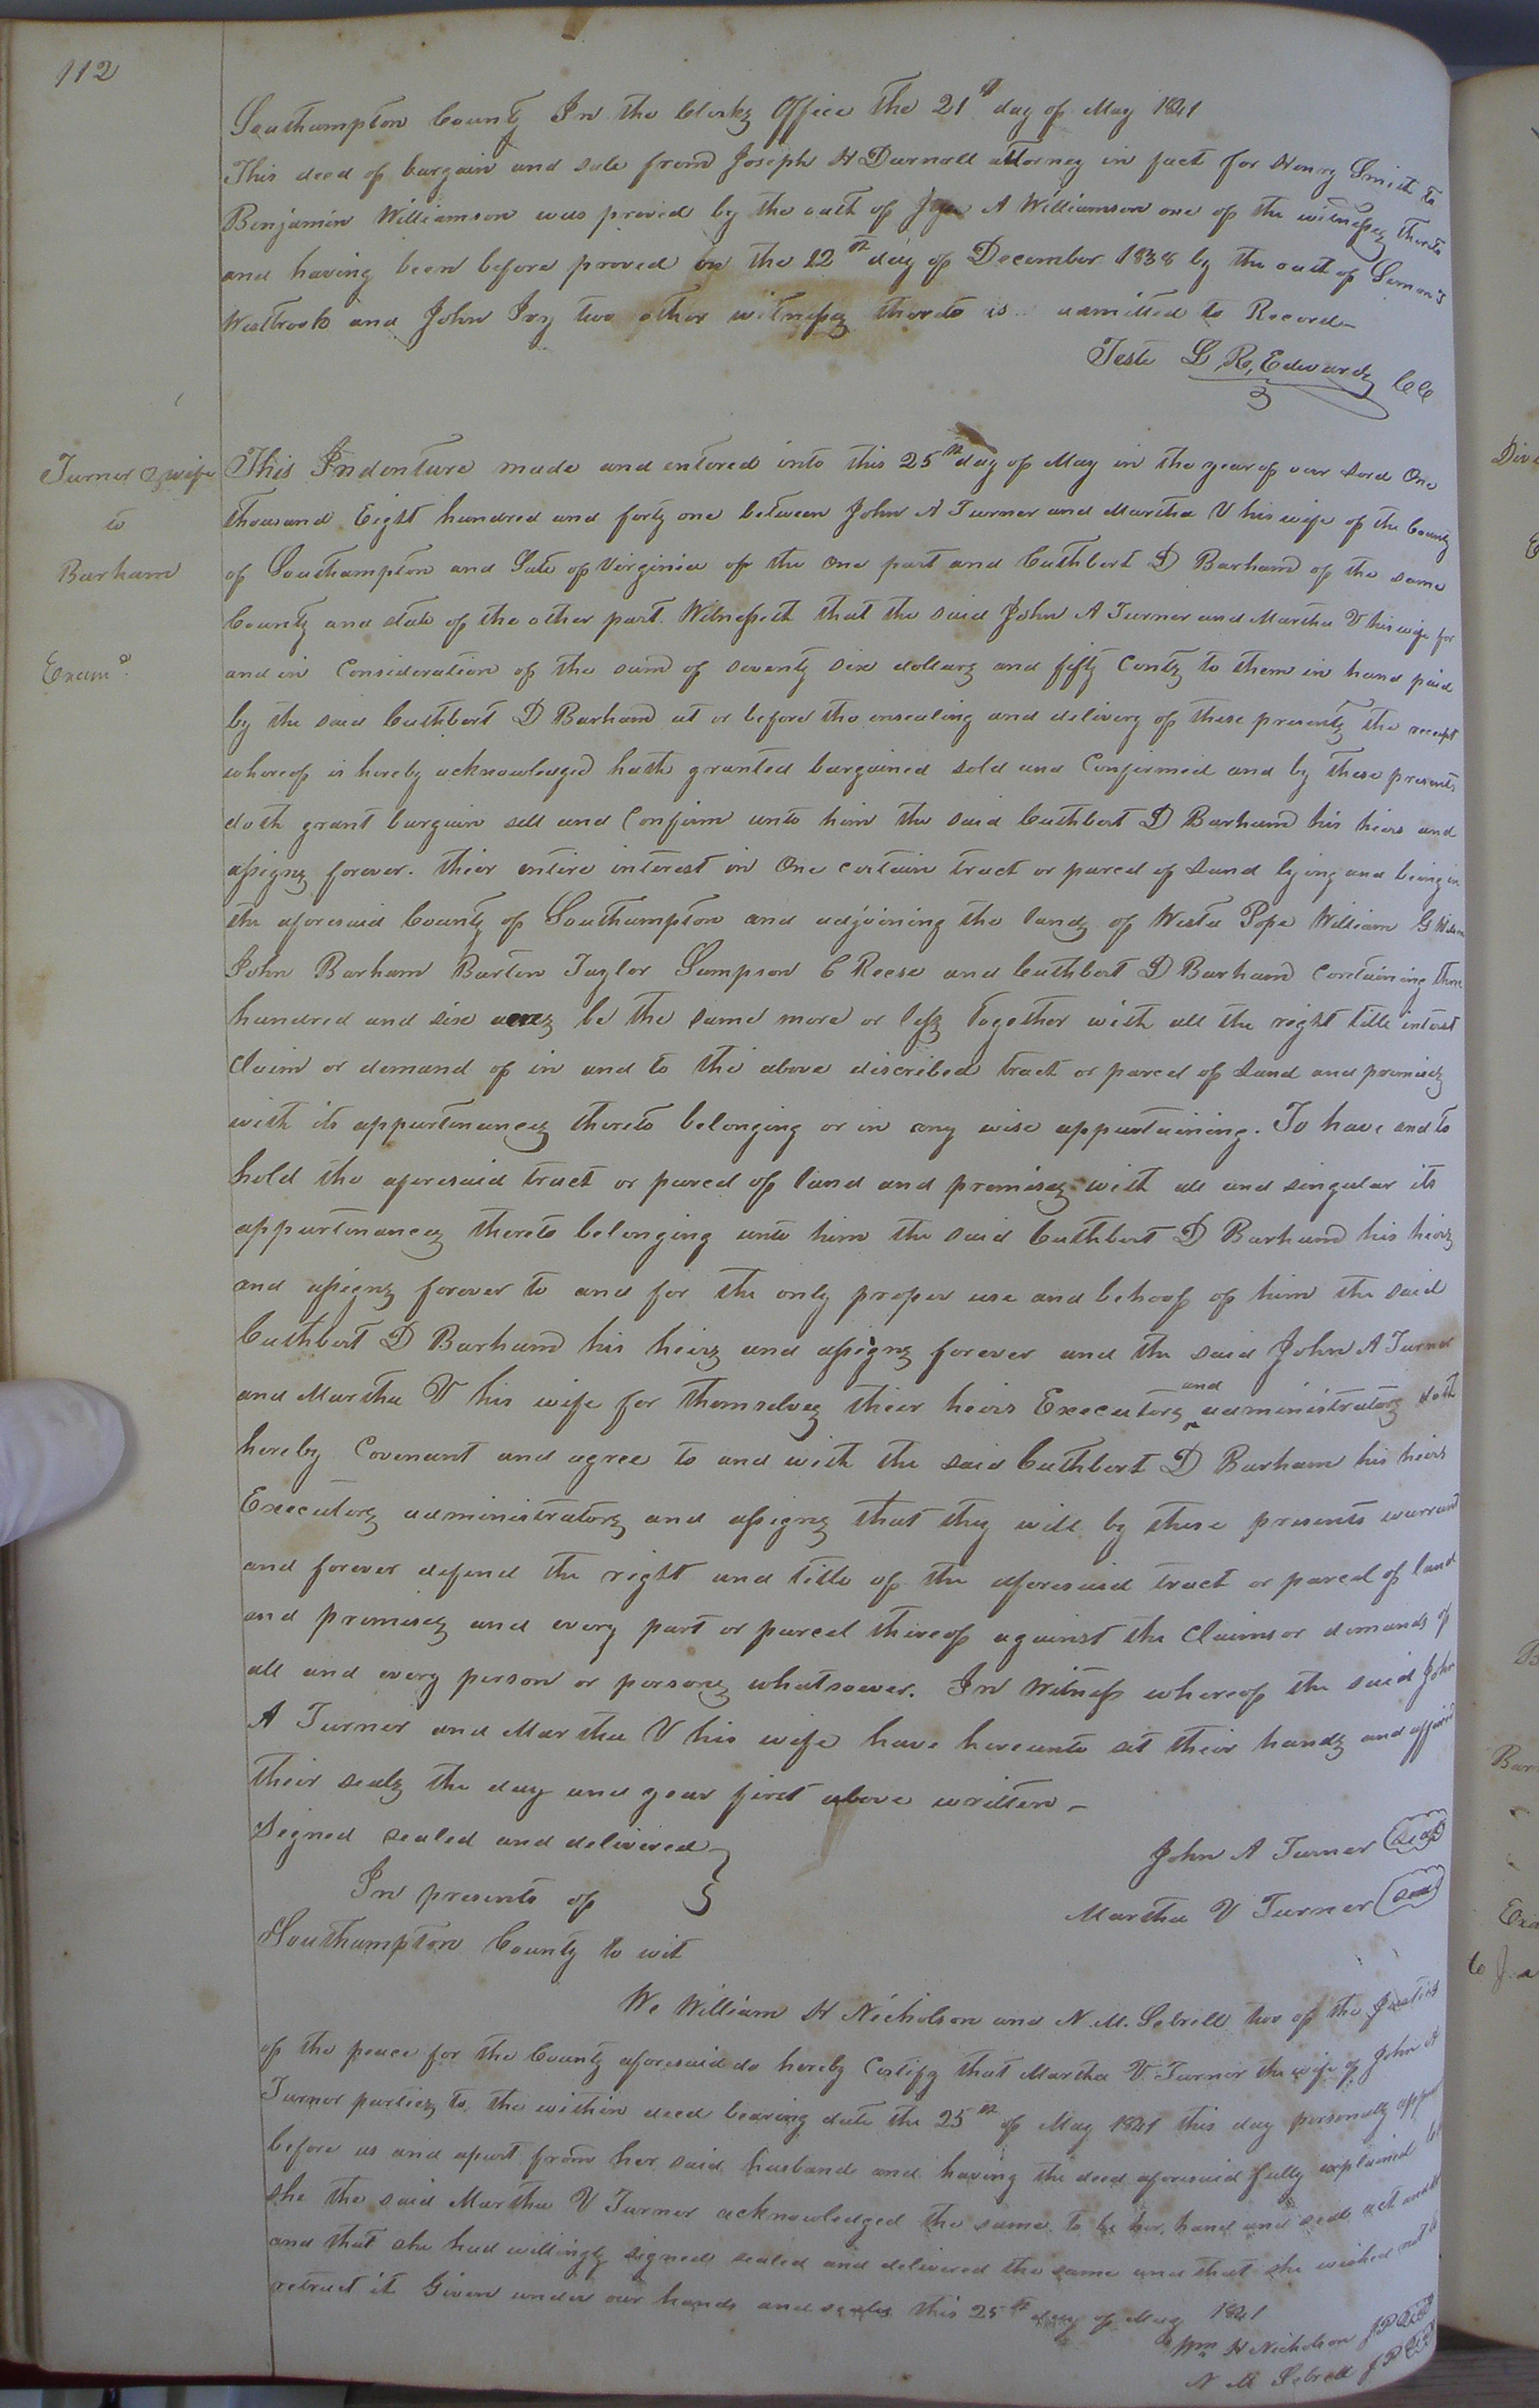 112
Southampton County In the Clerks Office the 21st day of May 1841
This deed of bargain and sale from Joseph H Darnall attorney in fact for Henry Smith to
Benjamin Williamson was proved by the oath of A Williamson one of the witnesses thereto
and having been before proved on the 22nd day of December 1838 by the oath of
Westbrook and John Ivy two other witnesses thereto is admitted to Record—
Teste L, R, Edwards CC
Turner & wife
to
Barham
Examd.
This Indenture made and entered into this 25th day of May in the year of our Lord One
thousand Eight hundred and forty one between John A Turner and Martha V his wife of the County
of Southampton and State of Virginia of the One part and Cuthbert D Barham of the same
County and state of the other part. Witnesseth that the said John A Turner and Martha V his wife for
and in Consideration of the sum of seventy six dollars and fifty Cents to them in hand paid
by the said Cuthbert D Barham at or before the ensealing and delivery of these presents the receipt
whereof is hereby acknowledged hath granted bargained sold and Confirmed and by these presents
doth grant bargain sell and Confirm unto him the said Cuthbert D Barham his heirs and
assigns forever. their entire interest in One certain tract or parcel of Land lying and being in
the aforesaid County of Southampton and adjoining the lands of Pope William G
John Barham Burten Taylor Sampson C Reese and Cuthbert D Barham Containing three
hundred and six acres be the same more or less Together with all the right title interest
Claim or demand of in and to the above discribed tract or parcel of Land and premises
with its appurtenances thereto belonging or in any wise appurtaining. To have and to
hold the aforesaid tract or parcel of land and premises with all and singular its
appurtenances thereto belonging unto him the said Cuthbert D Barham his heirs
and assigns forever to and for the only proper use and behoof of him the said
Cuthbert D Barham his heirs and assigns forever and the said John A Turner
and Martha V his wife for themselves their heirs Executors and administrators doth
hereby Covenant and agree to and with the said Cuthbert D Barham his heirs
Executors administrators and assigns that they will by these presents warrant
and forever defend the right and title of the aforesaid tract or parcel of land
and premises and every part or parcel thereof against the Claims or demands of
all and every person or persons whatsoever. In Witness whereof the said John
A Turner and Martha V his wife have hereunto set their hands and affixed
their seals the day and year first above written—
Signed sealed and delivered
In presents of
John A Turner (Seal)
Martha V Turner (Seal)
Southampton County to wit
We William H Nicholson and N. M. Sebrell two of the Justices
of the peace for the County aforesaid do hereby Certify that Martha V Turner the wife of John A
Turner parties to the within deed bearing date the 25th of May 1841 this day personally
before us and apart from her said husband and having the deed aforesaid fully explained
she the said Martha V Turner acknowledged the same to be her hand and seal act and
and that she had willingly signed sealed and delivered the same and that she wished not to
retract it Given under our hands and seals this 25th day of May 1841
Wm H Nicholson JP (Seal)
N M Sebrell JP (Seal)